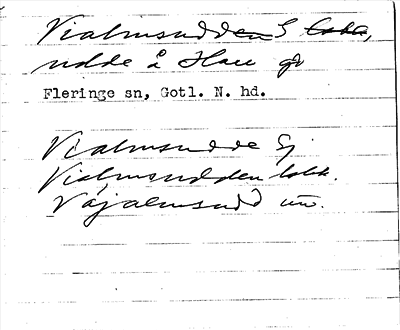 Vialmsudden S
udde å Hau
Fleringe sn, Gotl. N. hd.
Vialmsudde Sj
Vialmsudden lokk.
Väjalmsudd un.